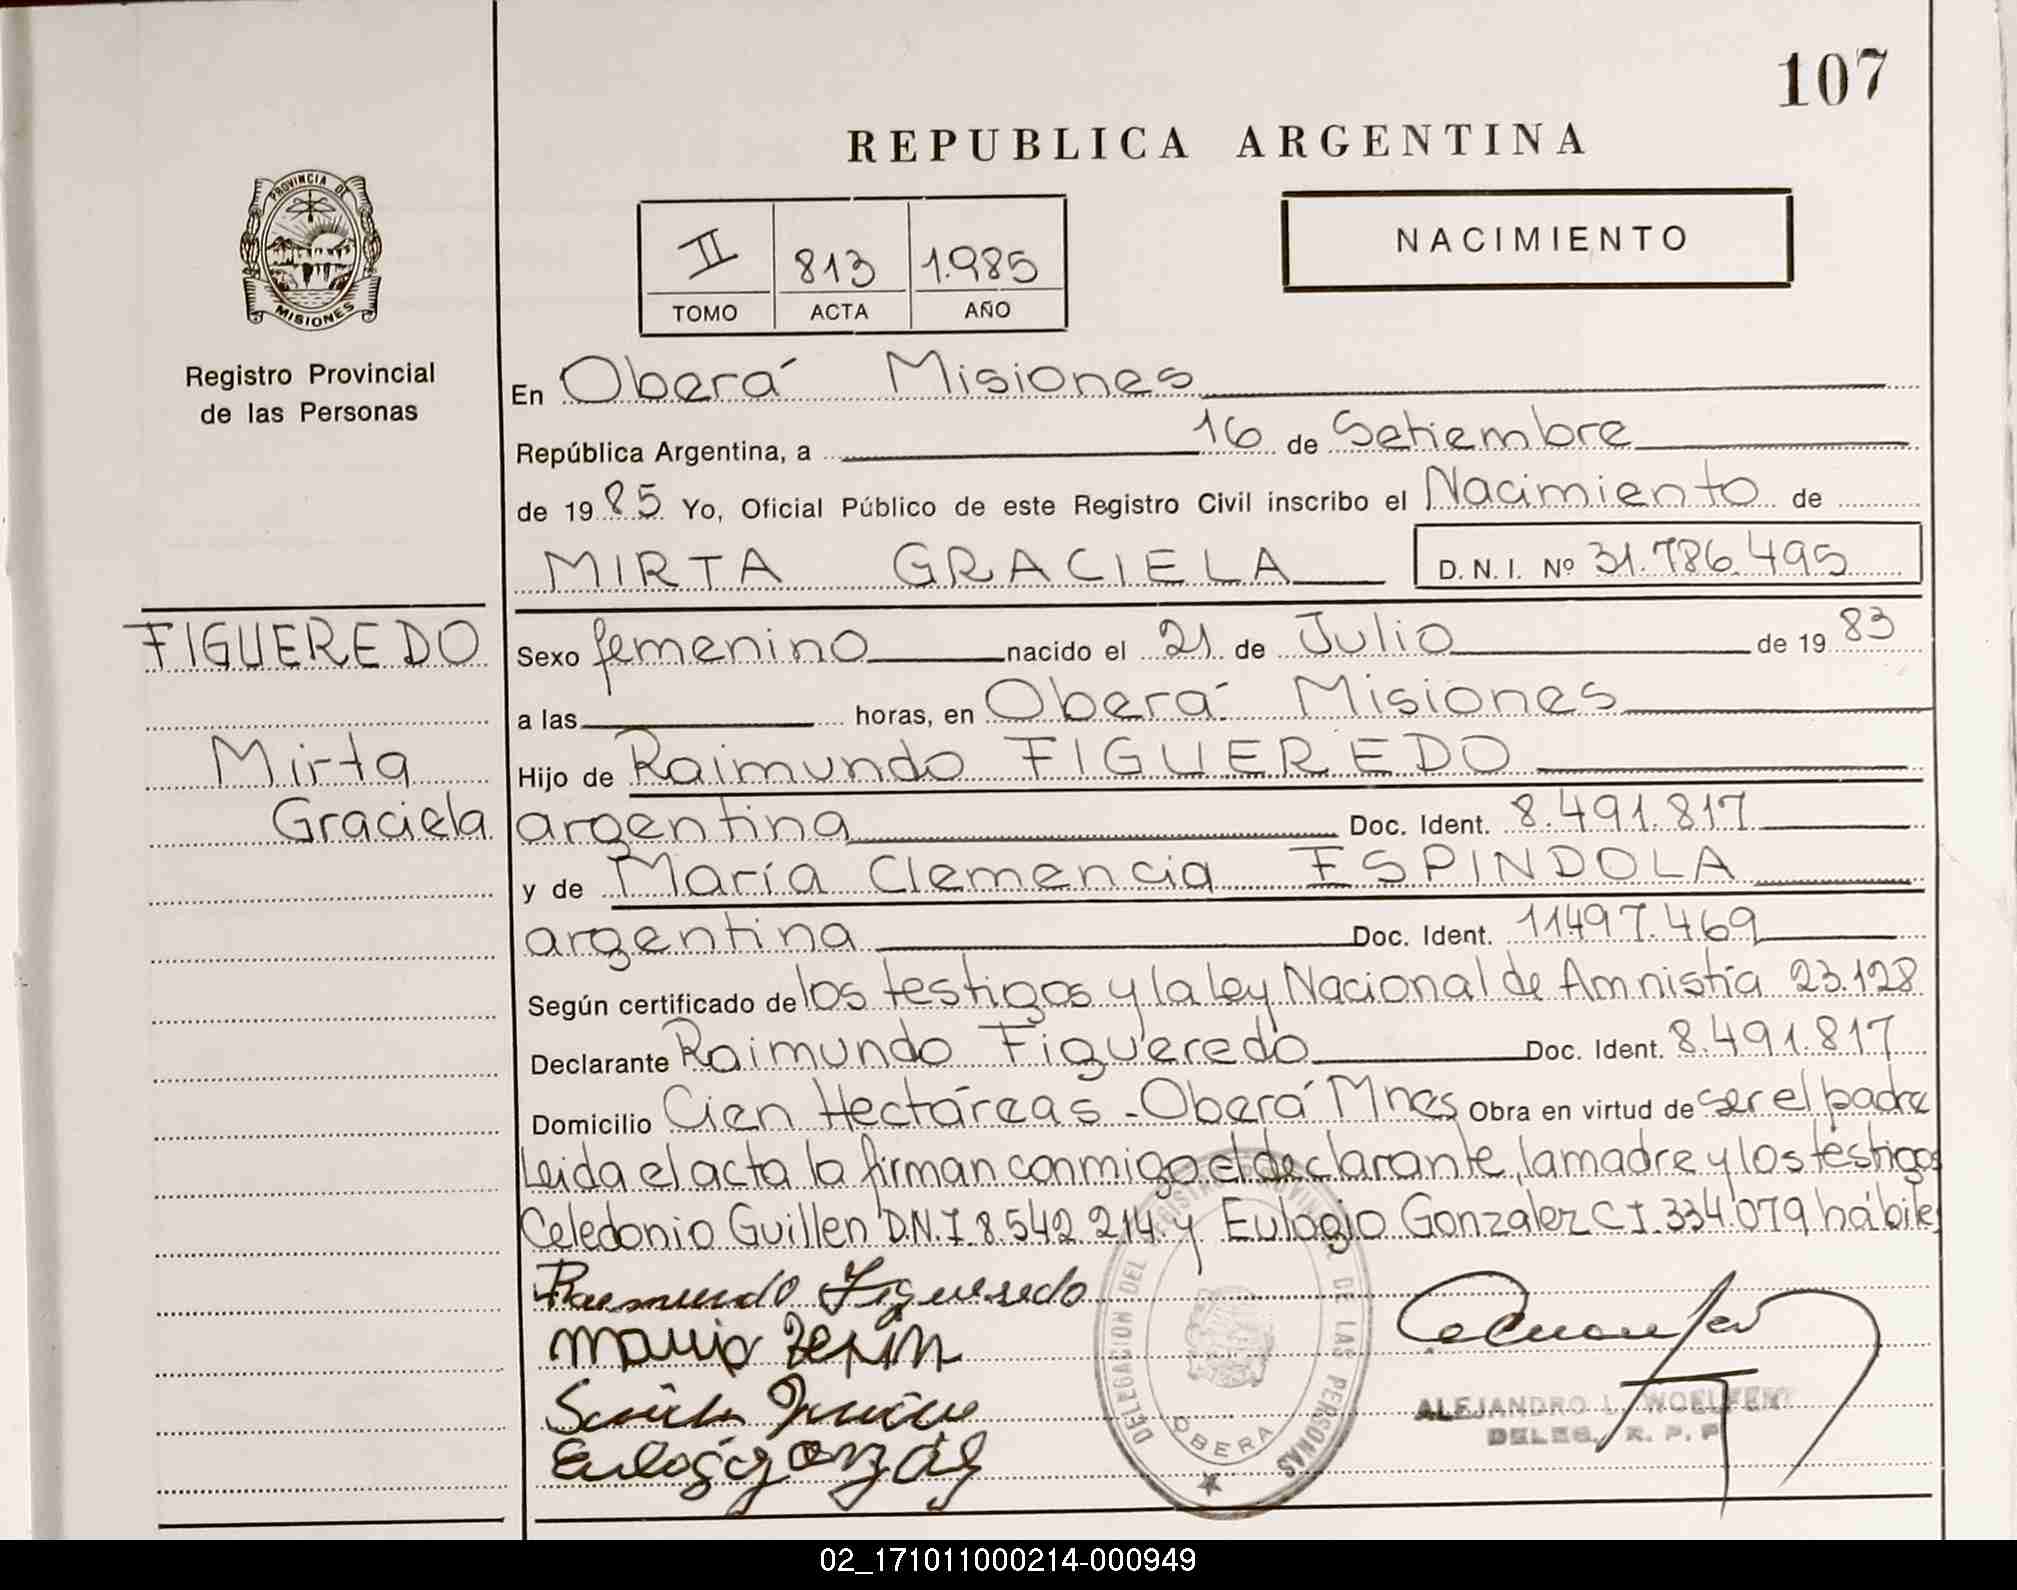 107
REPUBLICA ARGENTINA
PROVINCIA DE
MISIONES
II 813 1.985
TOMO ACTA AÑO
NACIMIENTO
Registro Provincial
de las Personas
En Oberá Misiones
República Argentina, a 16 de Setiembre
de 1985 Yo, Oficial Público de este Registro Civil inscribo el Nacimiento de
MIRTA GRACIELA D. N. I. Nº 31.786.495
FIGUEREDO
Mirta
Graciela
Sexo femenino nacido el 21 de Julio de 1983
a las horas, en Oberá Misiones
Hijo de Raimundo FIGUEREDO
argentina Doc. Ident. 8.491.817
y de María Clemencia ESPINDOLA
argentina Doc. Ident. 11497.469
Según certificado de los testigos y la ley Nacional de Amnistía 23.128
Declarante Raimundo Figueredo Doc. Ident. 8.491.817
Domicilio Cien Hectáreas - Oberá Mnes Obra en virtud de ser el padre
Leida el acta la firman conmigo el declarante, la madre y los testigos
Celedonio Guillen D.N.I 8.542 214 y Eulogio Gonzalez C I. 334.079 hábiles
Raimundo Figueredo
DELEGACION DEL REGISTRO PROVINCIAL DE LAS PERSONAS
OBERA
ALEJANDRO L. WOELFERT
DELEG. R. P. P.
02_171011000214-000949